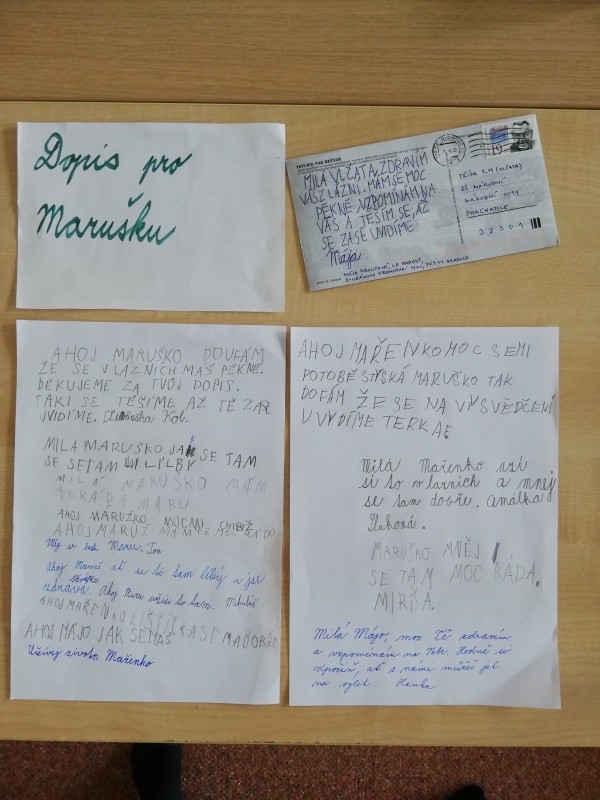 Dopis pro
Marušku
TEPLICE NAD BEČVOU
MILÁ VLČATA, ZDRAVÍM
VÁS Z LÁZNÍ. MÁM SE MOC
PĚKNĚ, VZPOMÍNÁM NA
VÁS A TĚŠÍM SE, AŽ
SE ZASE UVIDÍME
Mája
TŘÍDA 1.M (VLČATA)
ZŠ NÁRODNÍ
NÁRODNÍ 1014
PRACHATICE
38301
AHOJ MARUŠKO DOUFÁM
ŽE SE V LÁZNÍCH MÁŠ PĚKNĚ.
DĚKUJEME ZA TVŮJ DOPIS.
TAKI SE TĚŠÍME AŽ TĚ ZASE
UVIDÍME. Kob.
MILA MARUŠKO JAK SE TAM
SE SETAM LÍLBY
MILÁ MARUŠKO MÁM
TĚ RÁDA MARU
AHOJ MARUŽKO MOCMI CHIBIŽ
AHOJ MARUŽ MÁMTĚ MOC RÁDO
Měj se tad Maru. Ton
Ahoj Maruš ať se ti tam líbý a jsi
zdravá. Ahoj Maru užise to tam. Mikuláš
AHOJ MAŘENKO
AHOJ MÁJO JAK SEMÁŠ
Užívej života Mařenko
AHOJ MAŘENKO MOC SEMI
POTOBĚ STÝSKÁ MARUŠKO TAK
DOFÁM ŽE SE NA VYSVĚDČENÍ
UVYDÍME TERKA
Milá Mařenko uži
si to v laznich a mněj
se tam dobře. Amálka
MARUŠKO MNĚJ
SE TAM MOC RÁDA.
MIRĎA.
Milá Májo, moc Tě zdravím
a vzpomínám na Tebe. Hodně si
odpočiň, ať s námi můžeš jet
na výlet. Hanka